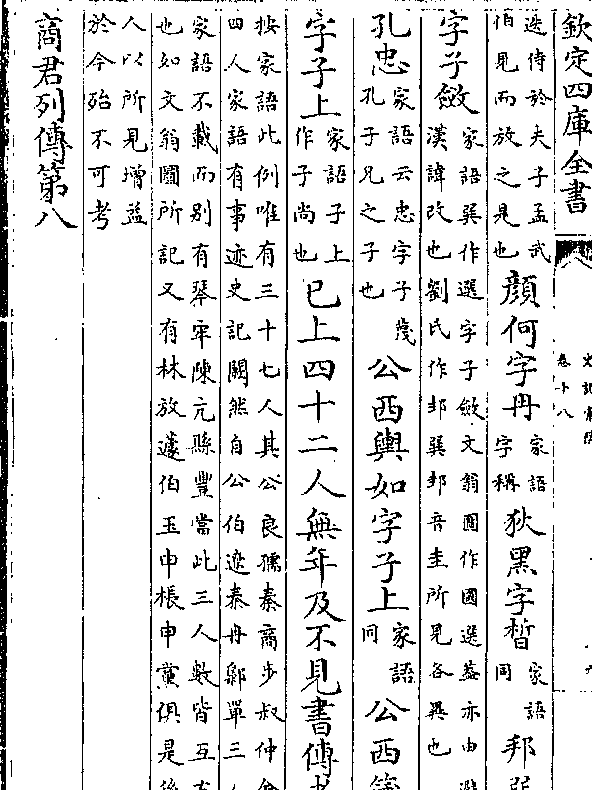 欽定四庫全書
卷十八
迭侍於夫子孟武
伯見而放之是也
顔何字冉
家語
字稱
狄黑字晳
家語
同
邦
字子斂
家語巽作選字子斂文翁圖作國選蓋亦由避
漢諱改也劉氏作邽巽邽音圭所見各異也
孔忠
家語云忠字子蔑
孔子兄之子也
公西輿如字子上
家語
同
公西
字子上
家語子上
作子尚也
已上四十二人無年及不見書傳
按家語此例唯有三十七人其公良孺秦商步叔仲會
四人家語有事迹史記闕然自公伯遼秦冉鄡單三人
家語不載而别有琴牢陳亢縣亶當此三人數皆互有
也如文翁圖所記又有林放蘧伯玉申棖申黨俱是後
人以所見增益
於今殆不可考
商君列傳第八